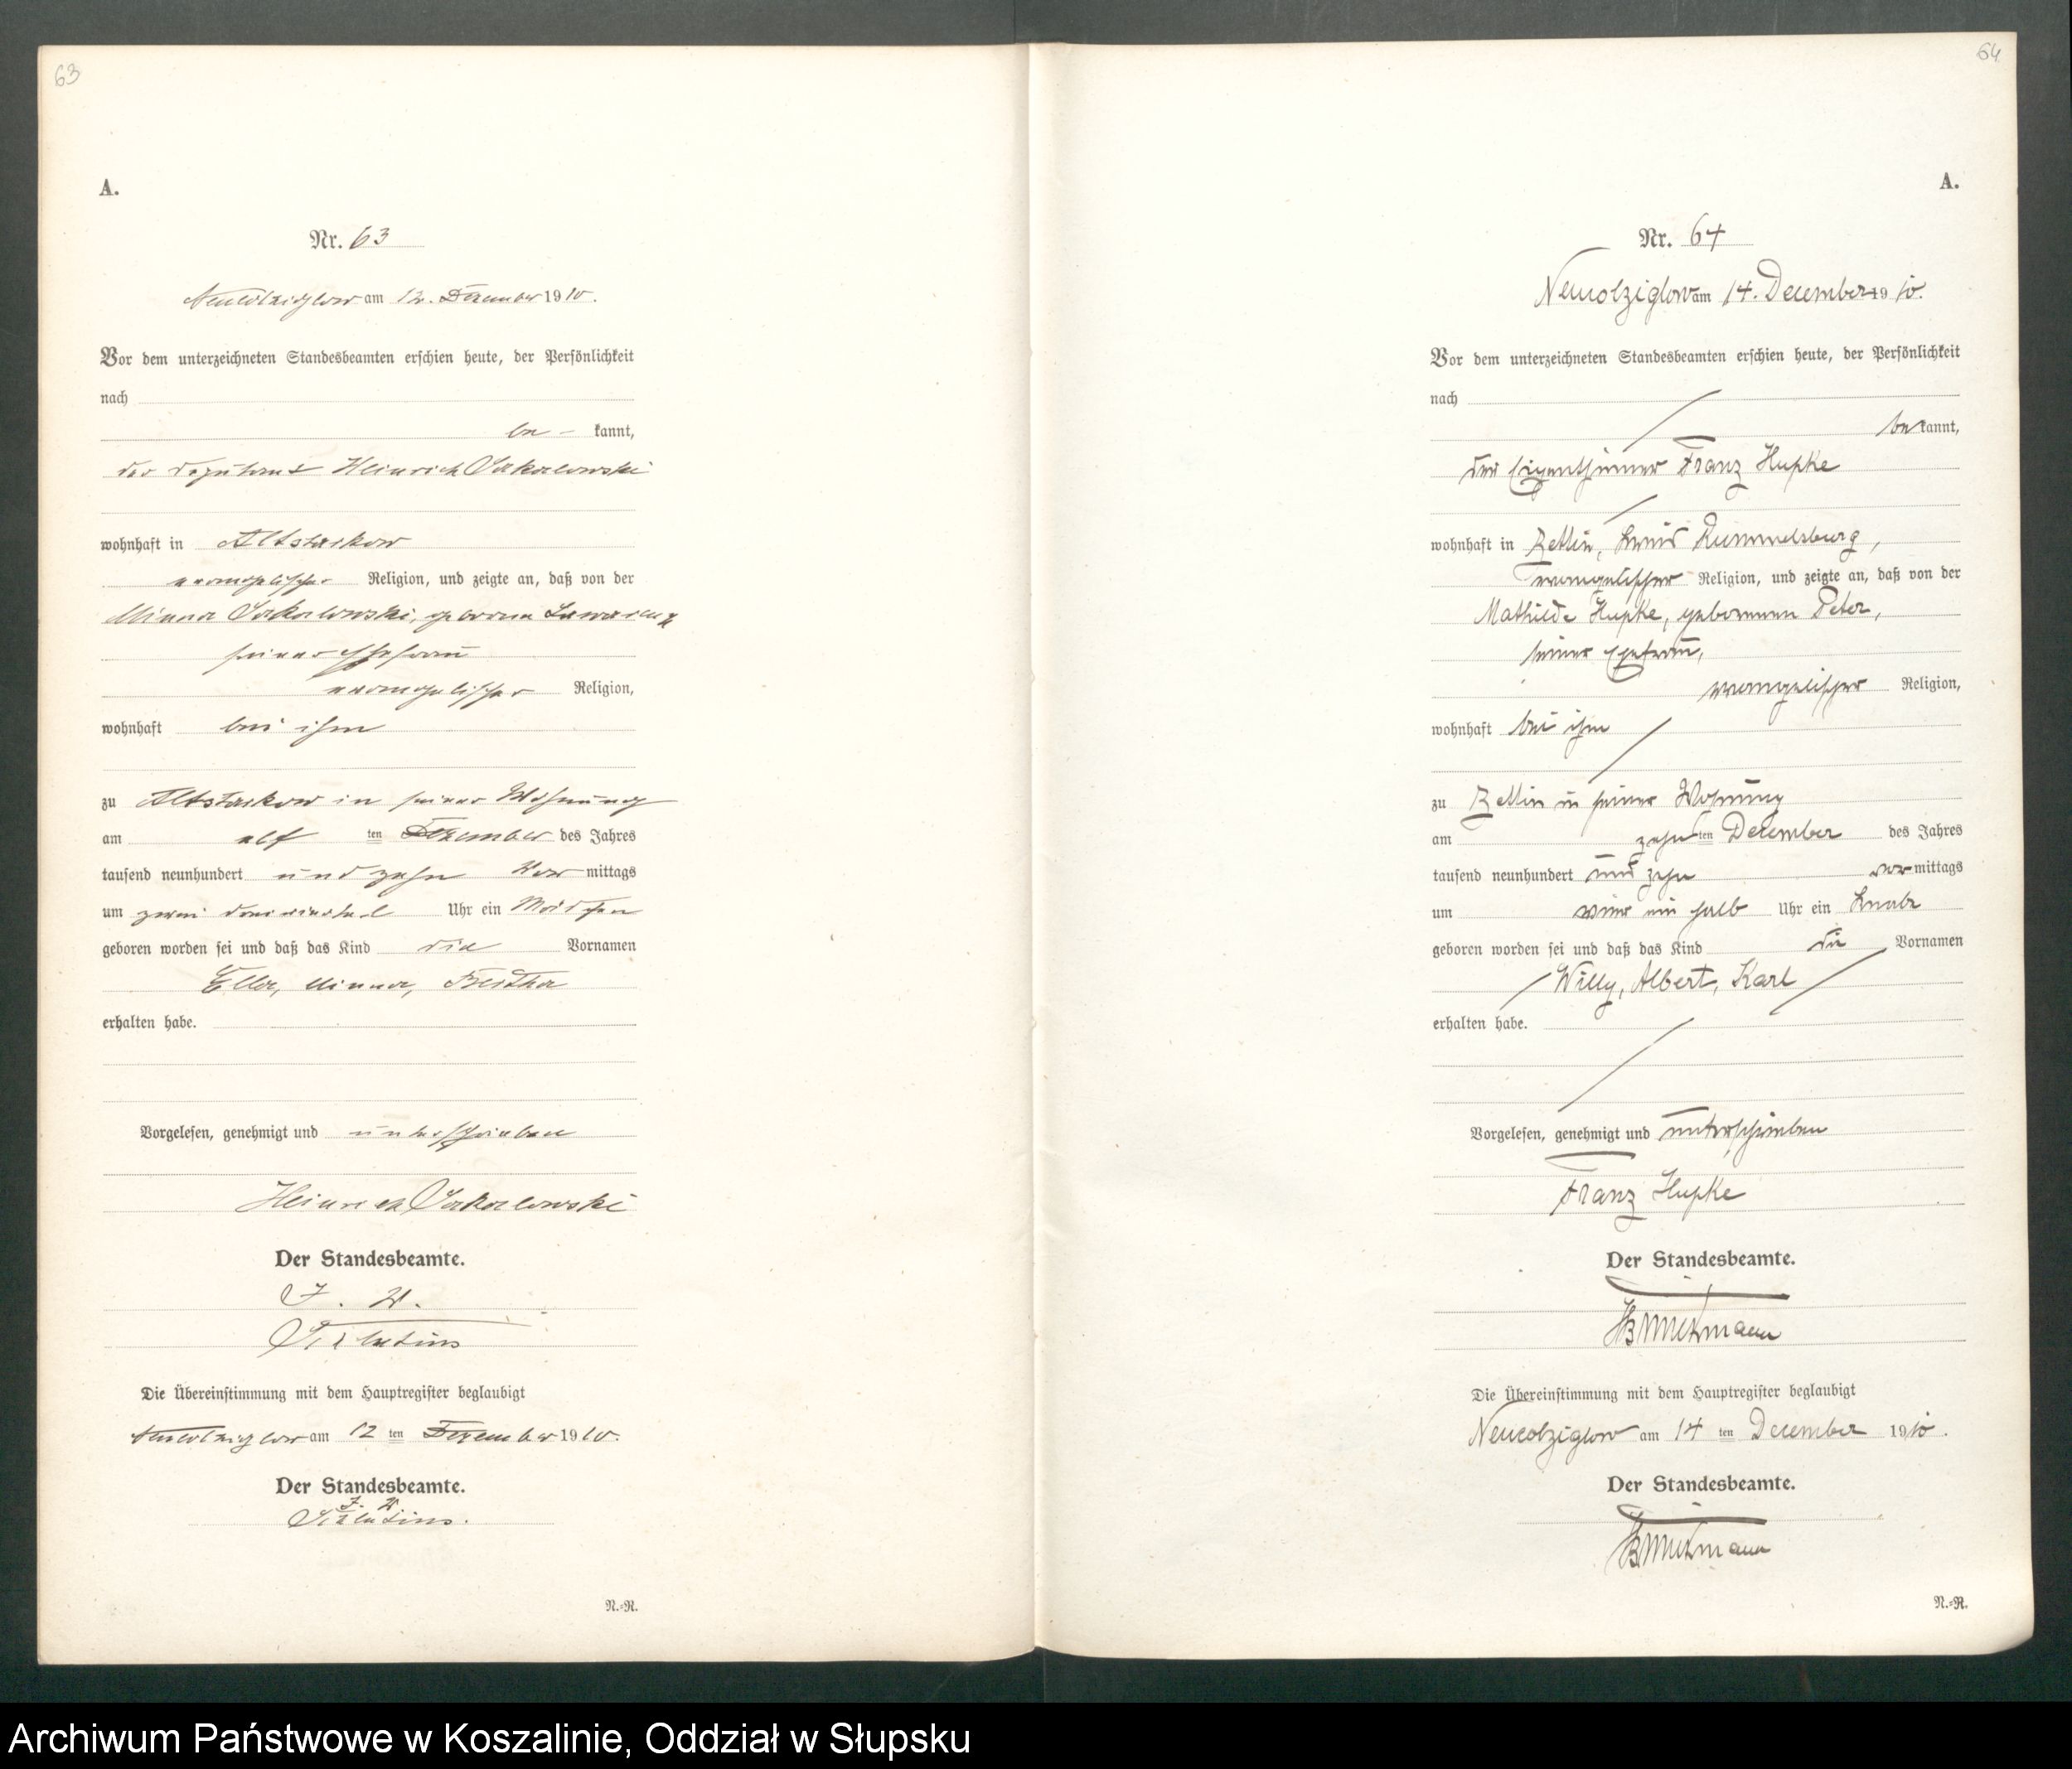 63
A.
Nr. 63
Neukolziglow am 12. Dezember 1910.
Vor dem unterzeichneten Standesbeamten erschien heute, der Persönlichkeit
nach
be- kannt,
der Deputant Heinrich Sakalowski
wohnhaft in Altstarkow
evangelischer Religion, und zeigte an, daß von der
Minna Sakalowski, geborene
seiner Ehefrau
evangelischer Religion,
wohnhaft bei ihm
zu in seiner Wohnung
am elf ten Dezember des Jahres
tausend neunhundert und zehn Vor mittags
um zwei dreiviertel Uhr ein Mädchen
geboren worden sei und daß das Kind die Vornamen
Ella, Minna, Bertha
erhalten habe.
Vorgelesen, genehmigt und unterschrieben
Heinrich Sakalowski
Der Standesbeamte.
J. V.
Die Übereinstimmung mit dem Hauptregister beglaubigt
Neukolziglow am 12 ten Dezember 1910.
Der Standesbeamte.
J. V.
N.=R.
64
A.
Nr. 64
Neucolziglow am 14. December 1910.
Vor dem unterzeichneten Standesbeamten erschien heute, der Persönlichkeit
nach
bekannt,
der Eigenthümer Franz Hupke
wohnhaft in Zettin, Kreis Rummelsburg,
evangelischer Religion, und zeigte an, daß von der
Mathilde Hupke, geborenen Peter,
seiner Ehefrau,
evangelischer Religion,
wohnhaft bei ihm
zu Zettin in seiner Wohnung
am zehn ten December des Jahres
tausend neunhundert und zehn vor mittags
um vier ein halb Uhr ein Knabe
geboren worden sei und daß das Kind die Vornamen
Willy, Albert, Karl
erhalten habe.
Vorgelesen, genehmigt und unterschrieben
Franz Hupke
Der Standesbeamte.
Die Übereinstimmung mit dem Hauptregister beglaubigt
Neucolziglow am 14 ten December 1910.
Der Standesbeamte.
N.=R.
Archiwum Państwowe w Koszalinie, Oddział w Słupsku